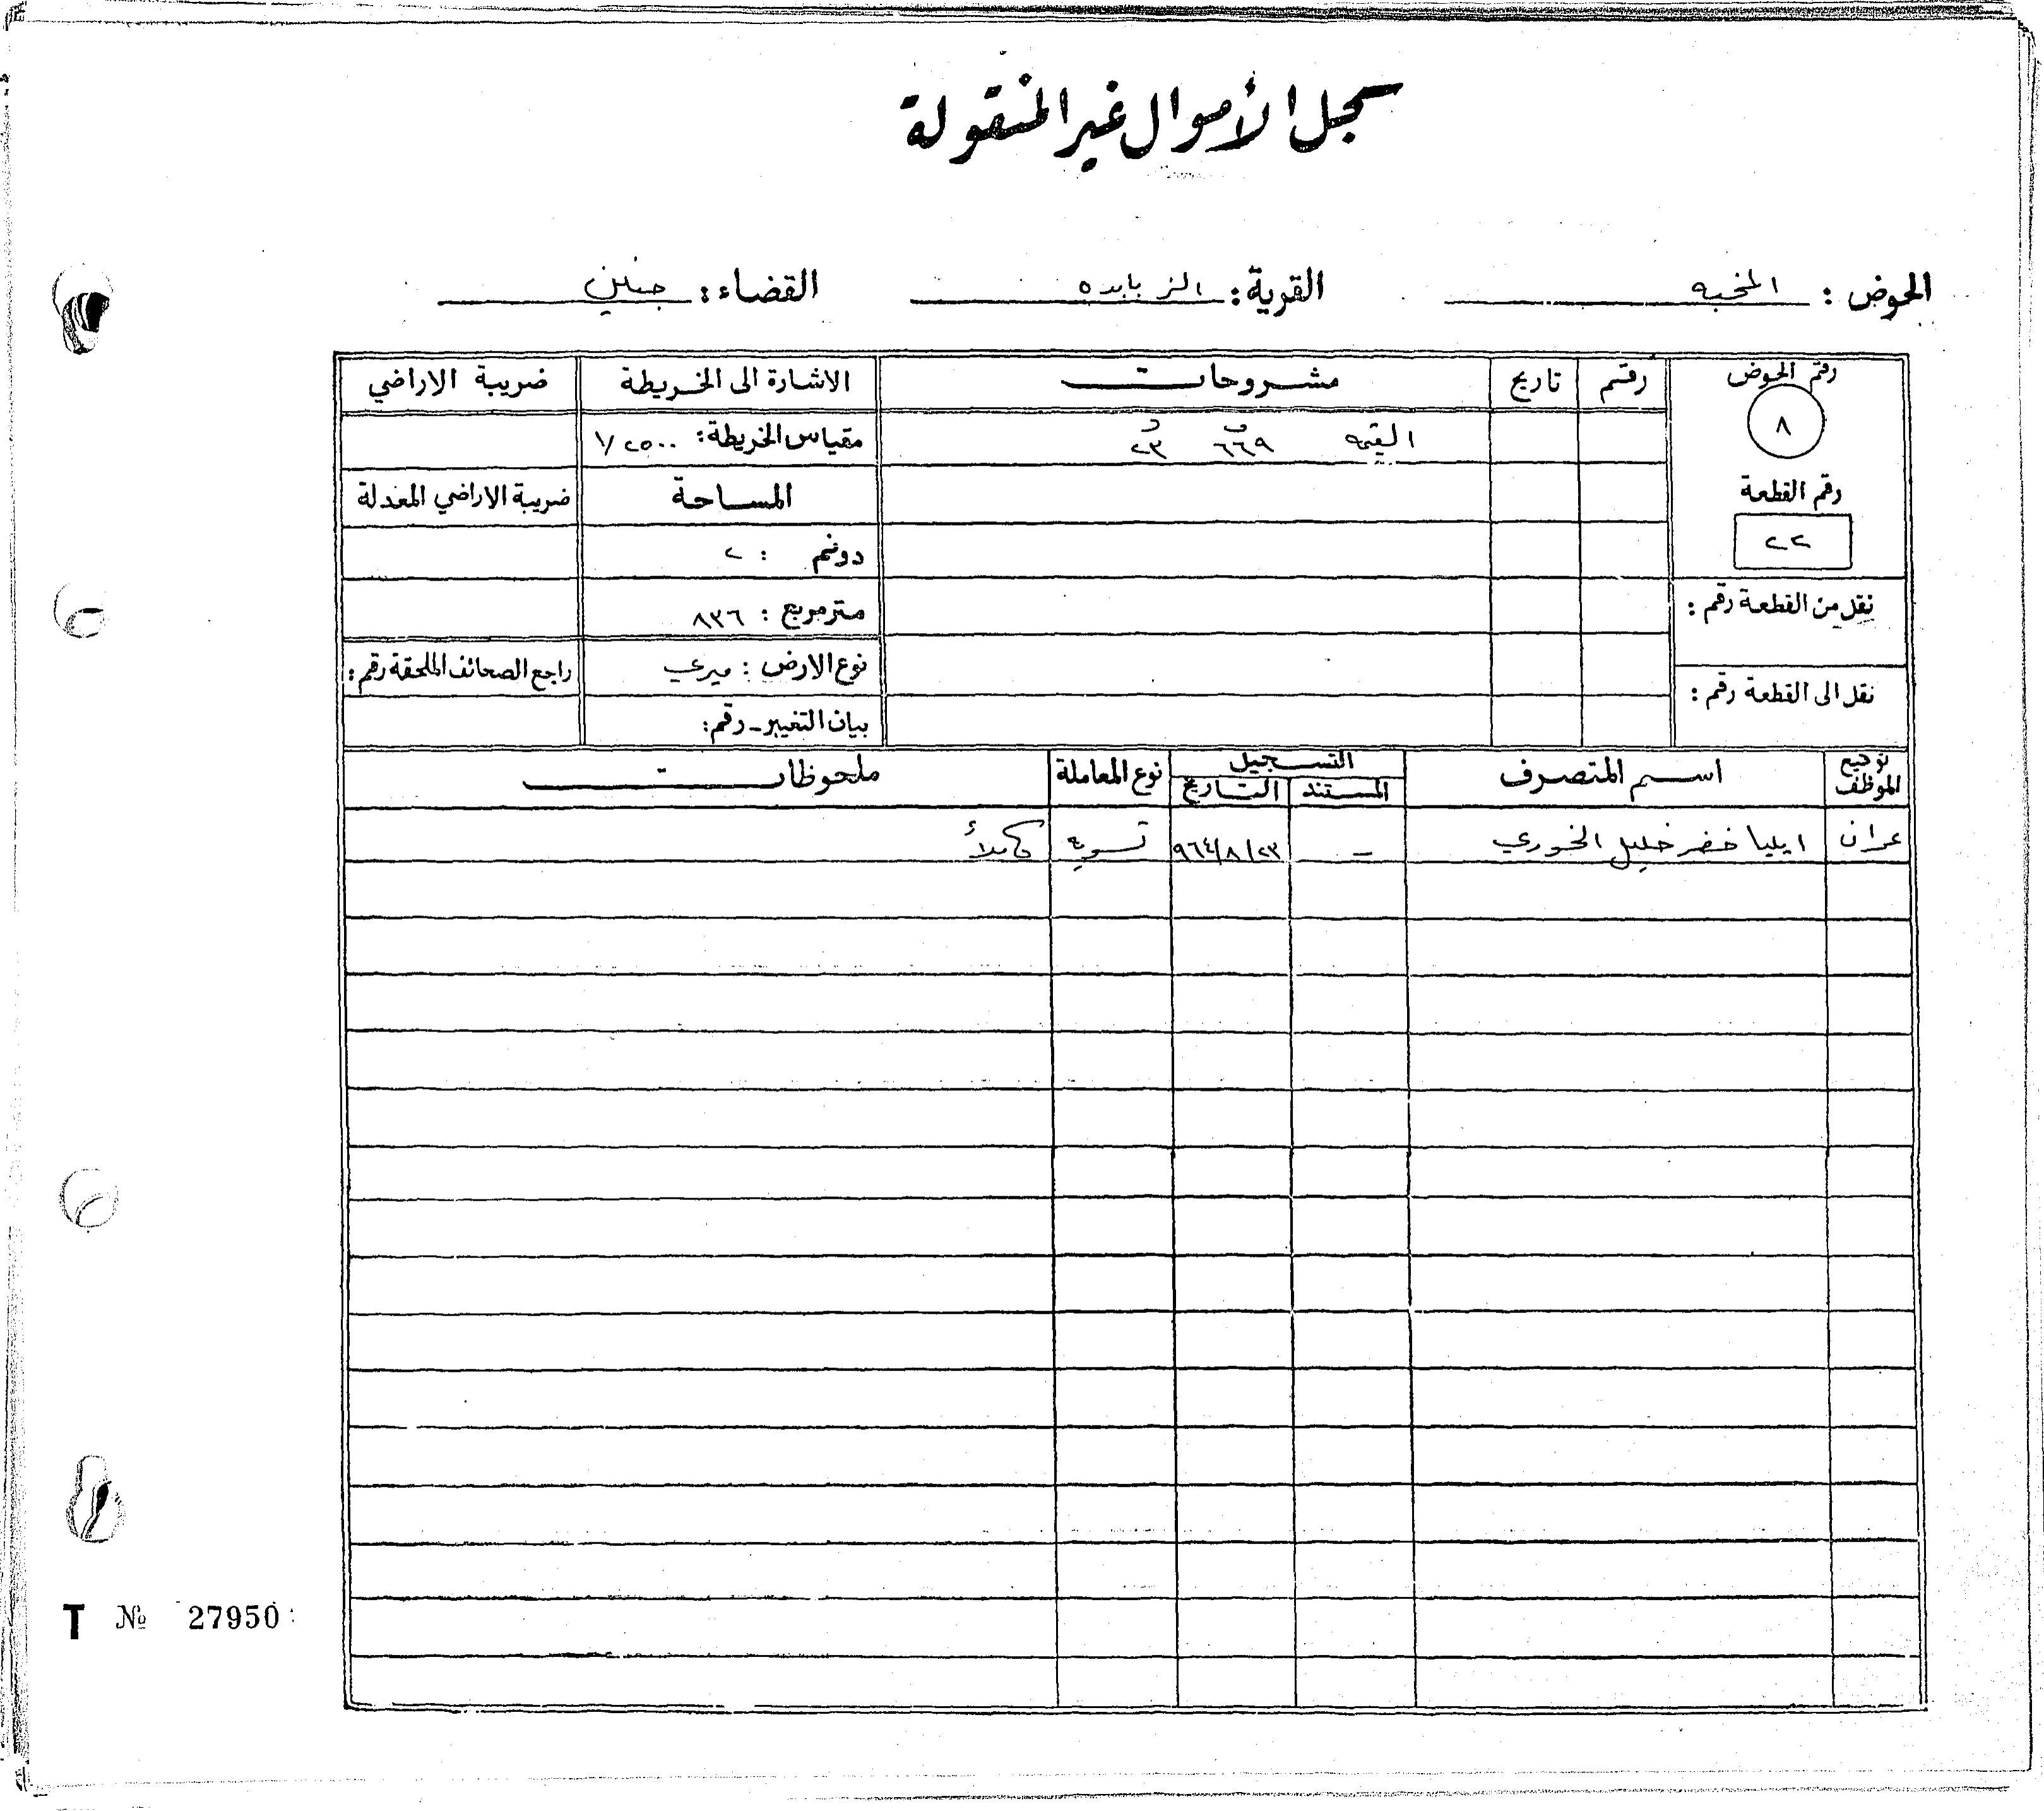 سجل الأموال غير المنقولة
الحوض : المخبه القرية : الزبابده القضاء : جنين
رقم الحوض رقم تاريخ مشروحات الاشارة الى الخريطة ضريبة الاراضي
٨ القيمه ٦٦٩ ف ٢٣ د مقياس الخريطة : ١/٢٥٠٠
رقم القطعة المساحة ضريبة الاراضي المعدلة
٢٢ دونم : ٢
نقل من القطعة رقم : مترمربع : ٨٣٦
نوع الارض : ميري راجع الصحائف الملحقة رقم :
نقل الى القطعة رقم : بيان التغيير - رقم :
توقيع الموظف اسم المتصرف التسجيل نوع المعاملة ملحوظات
المستند التاريخ
عمران ايليا خضر خليل الخوري - ٩٦٤/٨/٢٣ تسويه كاملاً
T № 27950